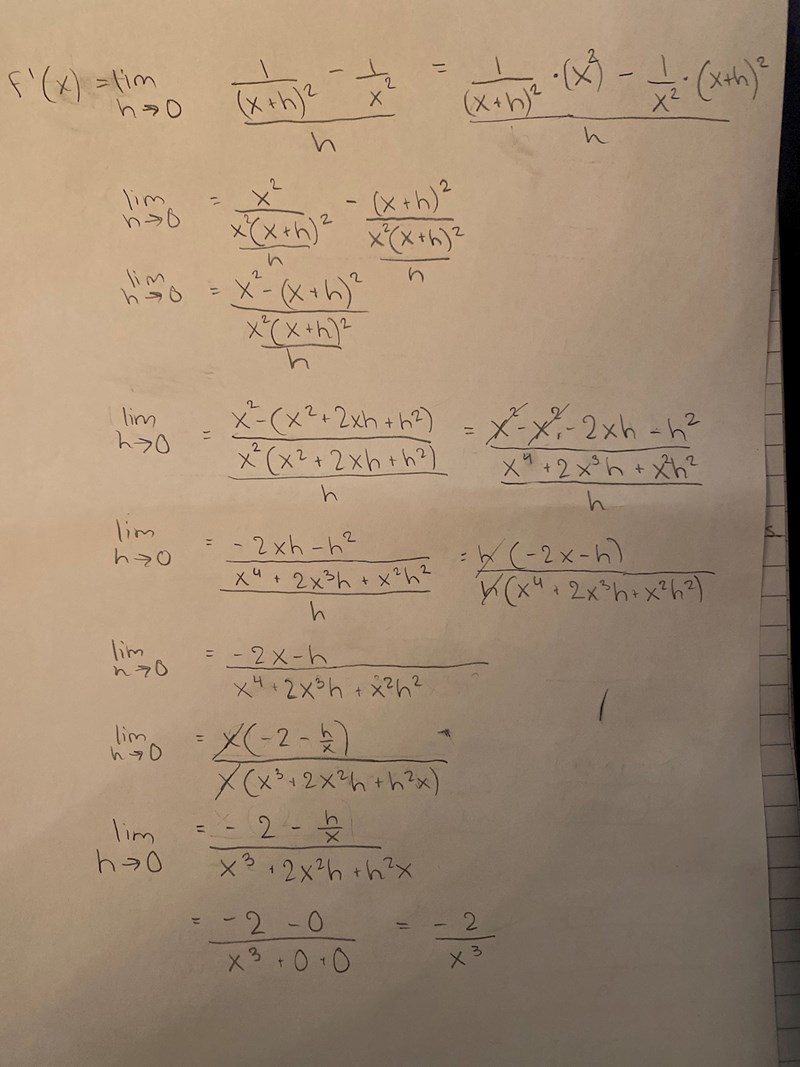 f'(x) = lim h→0 (1/(x+h)² - 1/x²)/h = (1/(x+h)² · (x²) - 1/x² · (x+h)²)/h
lim h→0 = (x²/(x²(x+h)²))/h - ((x+h)²/(x²(x+h)²))/h
lim h→0 = ((x² - (x+h)²)/(x²(x+h)²))/h
lim h→0 = ((x² - (x² + 2xh + h²))/(x²(x² + 2xh + h²)))/h = ((x² - x² - 2xh - h²)/(x⁴ + 2x³h + x²h²))/h
lim h→0 = ((-2xh - h²)/(x⁴ + 2x³h + x²h²))/h = h(-2x - h)/(h(x⁴ + 2x³h + x²h²))
lim h→0 = (-2x - h)/(x⁴ + 2x³h + x²h²)
lim h→0 = x(-2 - h/x)/(x(x³ + 2x²h + h²x))
lim h→0 = (-2 - h/x)/(x³ + 2x²h + h²x)
= (-2 - 0)/(x³ + 0 + 0) = -2/x³